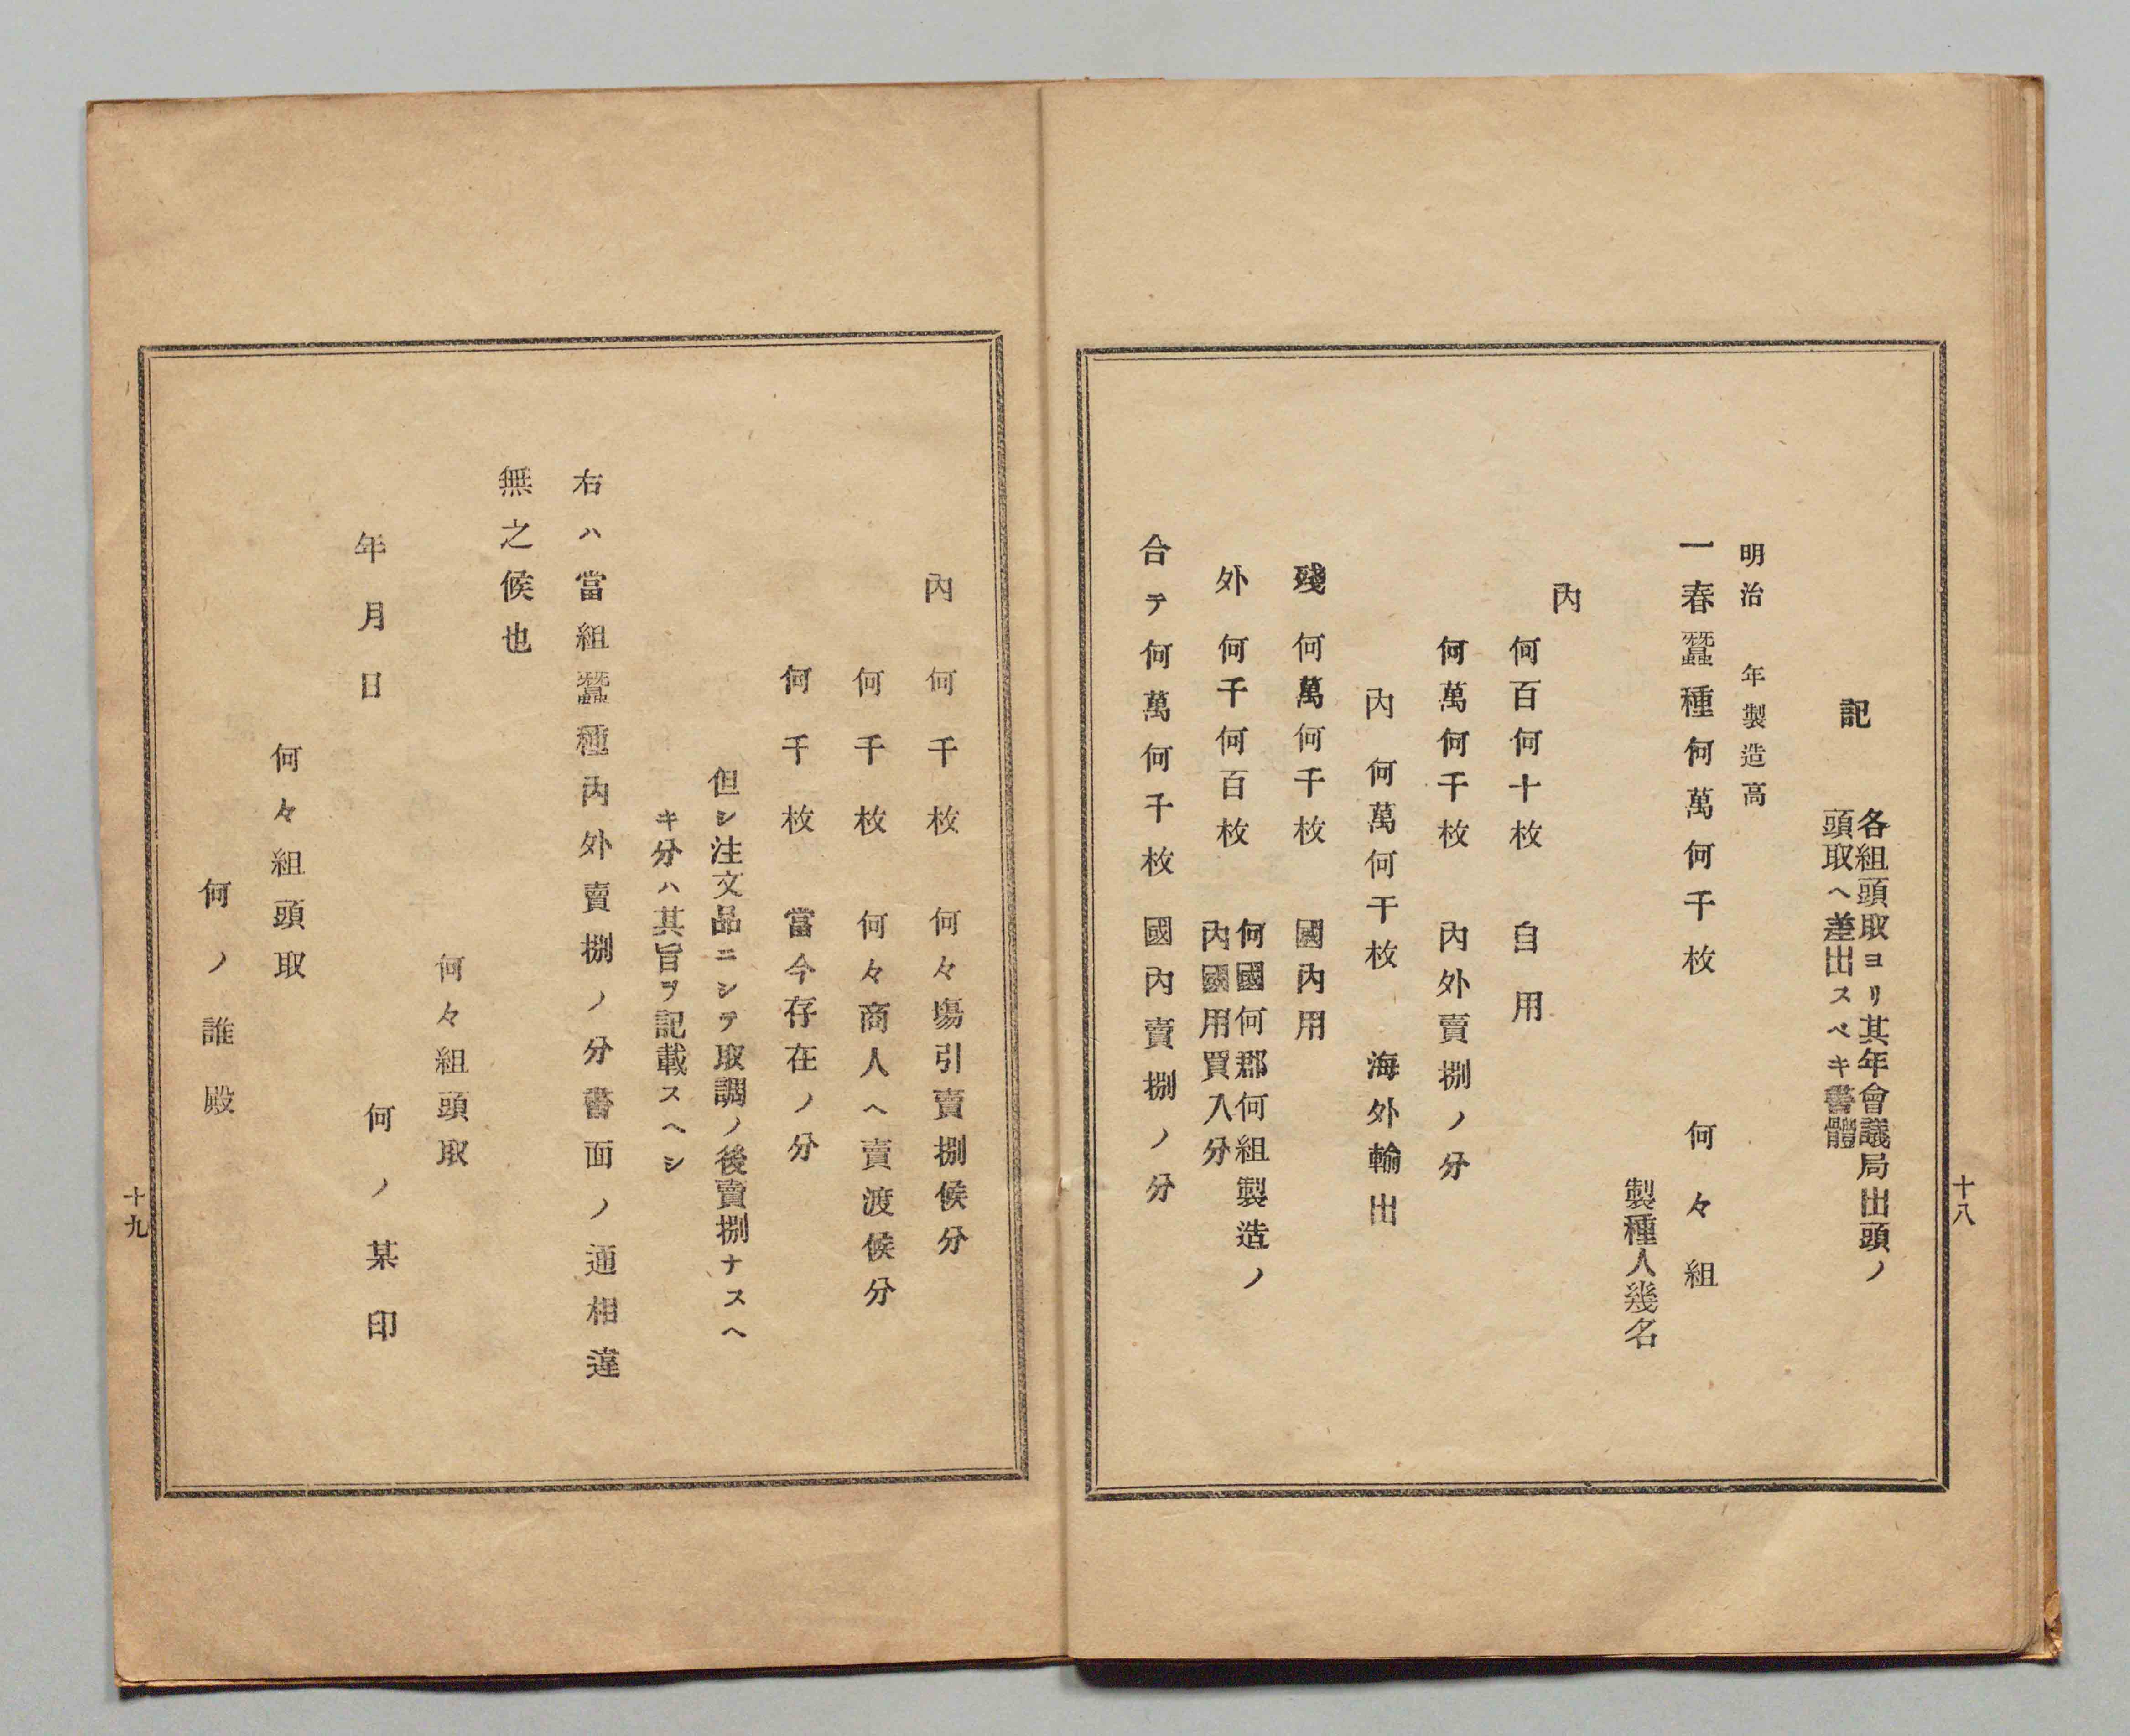 記
各組頭取ヨリ其年會議局出頭ノ
頭取ヘ差出スベキ書體
明治 年製造高
一春蠶種何萬何千枚 何々組
製種人幾名
內
何百何十枚 自用
何萬何千枚 內外賣捌ノ分
內 何萬何千枚 海外輸出
殘 何萬何千枚 國內用
外 何千何百枚 何國何郡何組製造ノ
內國用買入分
合テ何萬何千枚 國內賣捌ノ分
十八
內 何千枚 何々塲引賣捌候分
何千枚 何々商人ヘ賣渡候分
何千枚 當今存在ノ分
但シ注文品ニシテ取調ノ後賣捌ナスヘ
キ分ハ其旨ヲ記載スヘシ
右ハ當組蠶種內外賣捌ノ分書面ノ通相違
無之候也
何々組頭取
年月日 何ノ某印
何々組頭取
何ノ誰殿
十九